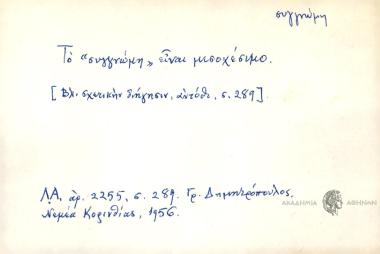 συγγνώμη
Τὸ "συγγνώμη" εἶναι μισοχέσιμο.
[Βλ. σχετικὴν διήγησιν, αὐτόθι, σ. 289].
Λ.Α. ἀρ. 2255, σ. 289. Γρ. Δημητρόπουλος.
Νεμέα Κορινθίας, 1956.
ΑΚΑΔΗΜΙΑ ΑΘΗΝΩΝ